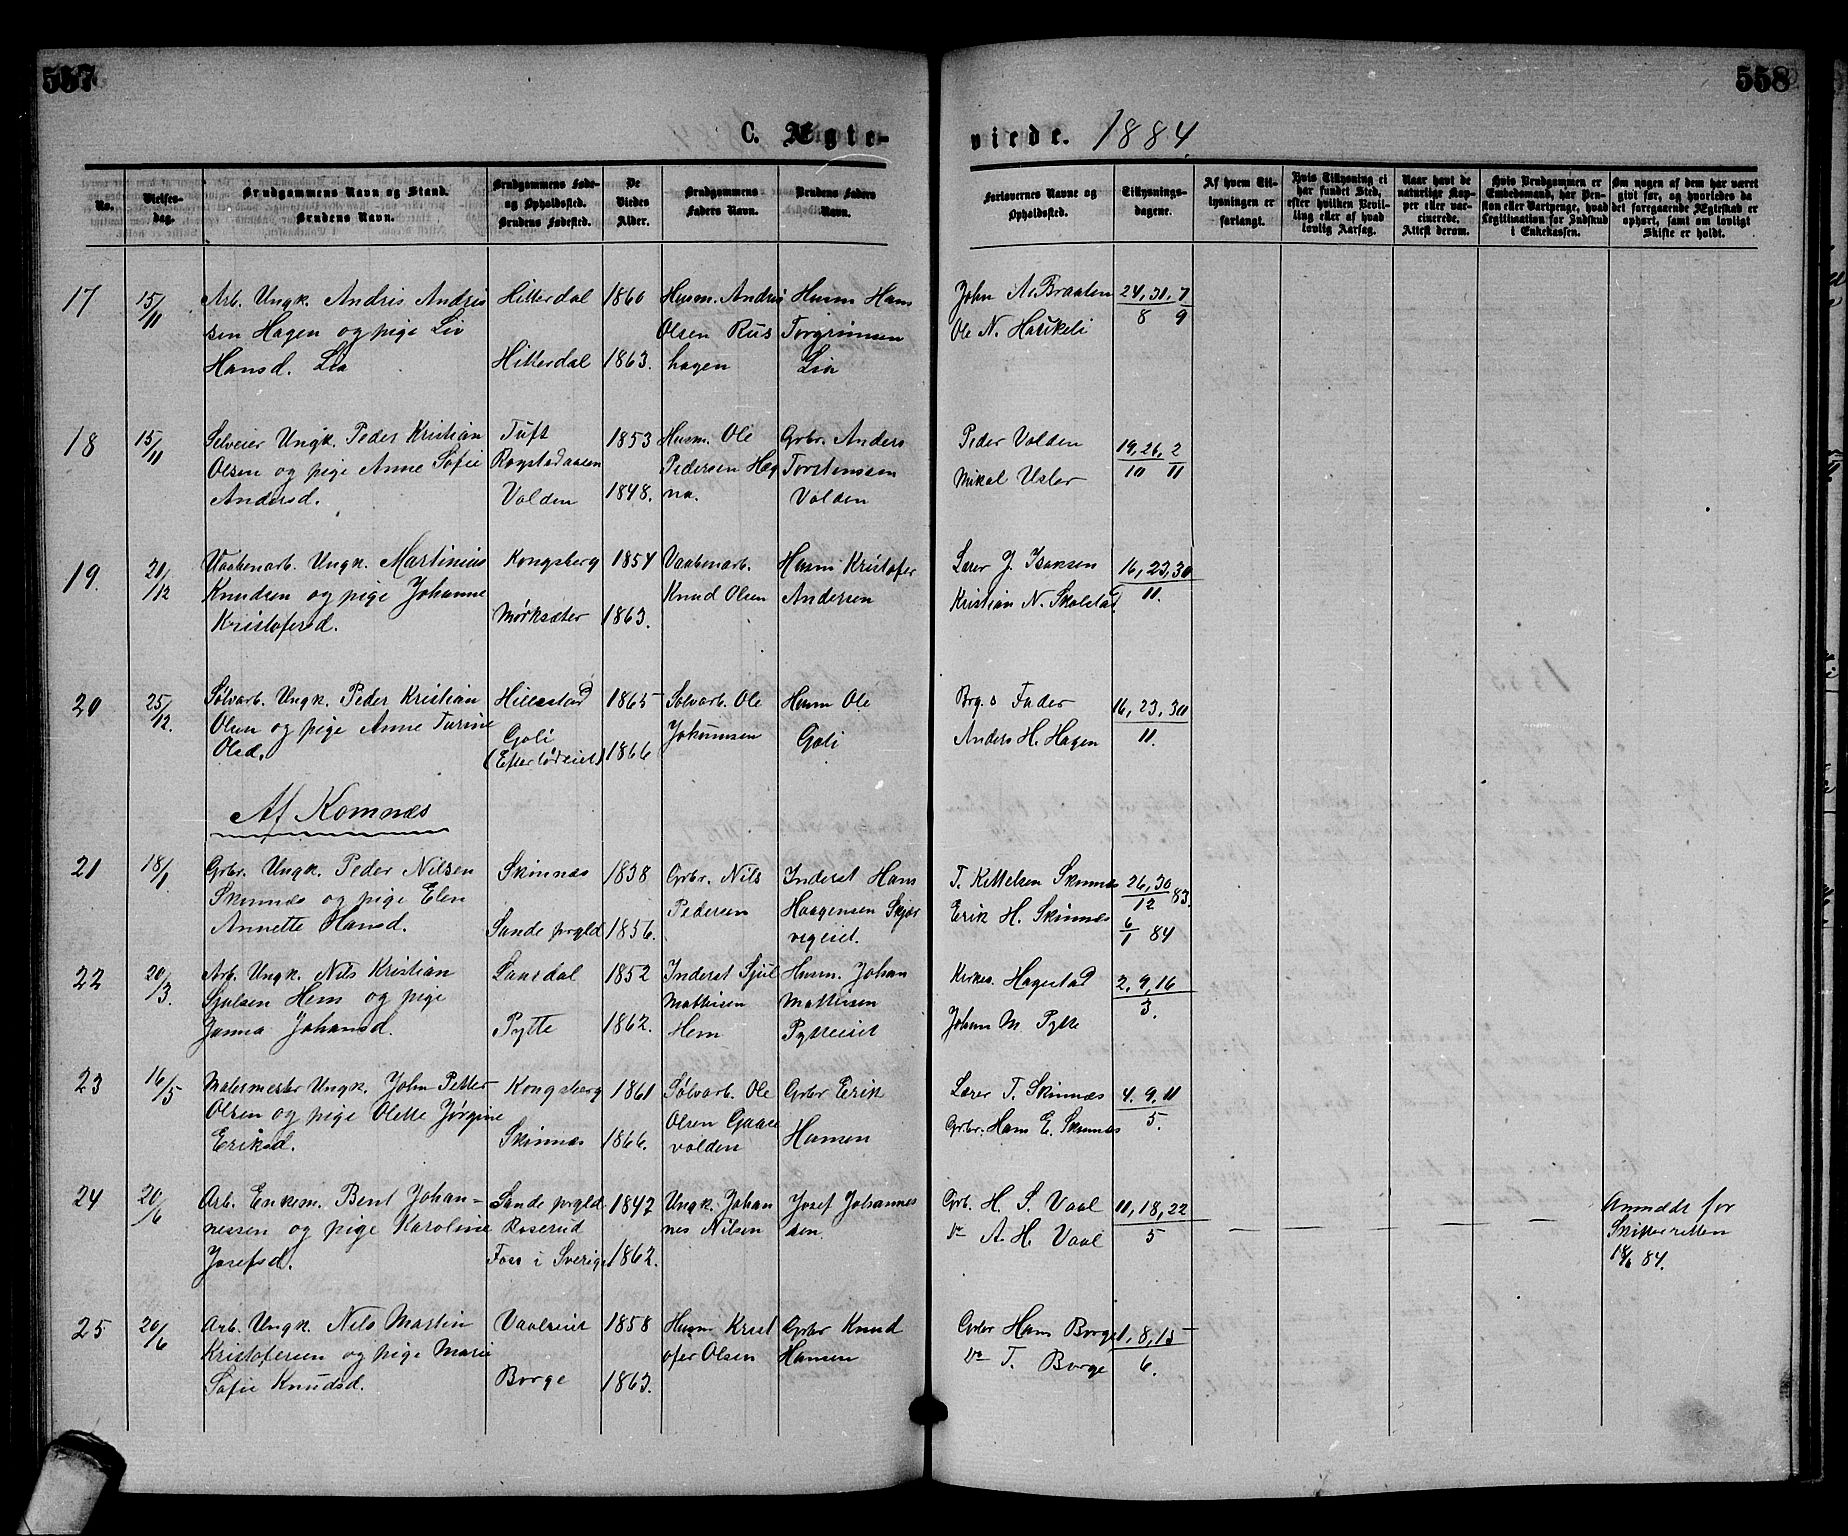 557
558
C. Ægte-
viede. 1884
No.
Vielses-
dag.
Brudgommens Navn og Stand.
Brudens Navn.
Brudgommens Føde-
og Opholdssted.
Brudens Fødested.
De
Viedes
Alder.
Brudgommens
Faders Navn.
Brudens Faders
Navn.
Forlovernes Navne og
Opholdssted.
Tillysnings-
dagene.
Af hvem Til-
lysningen er
forlangt.
Hvis Tillysning ei
har fundet Sted,
efter hvilken Bevil-
ling eller af hvad
lovlig Aarsag.
Naar havt de
naturlige Kop-
per eller vac-
cinerede.
Attest derom.
Hvis Brudgommen er
Embedsmand, har Pen-
sion eller Vartpenge, hvad
Legitimation for Indskud
i Enkekassen.
Om nogen af dem har været
gift før, og hvorledes da
det foregaaende Ægteskab er
ophørt, samt om lovligt
Skifte er holdt.
17 15/11 Arb. Ungk. Andris Andris Hitterdal 1860 Husm. Andris Husm Hans John A. Braaten 24, 31, 7
sen Hagen og pige Liv Olsen Rus Torgrimsen Ole N. Haukeli 8 9
Hansd. Lia Hitterdal 1863. hagen Lia
18 15/11 Selveier Ungk. Peder Kristian Tuft 1853 Husm. Ole Grbr. Anders Peder Volden 19, 26, 2
Olsen og pige Anne Sofie Rogstadaasen Pedersen Hæg Torstenssen Mikal Uslar 10 11
Andersd. Volden 1848. na. Volden
19. 21/12 Vaabenarb. Ungk. Martinius Kongsberg 1854 Vaabenarb. Husm Kristofer Lærer J. Isaksen 16, 23, 30
Knudsen og pige Johanne Knud Olsen Andersen Kristian N. Skolstad 11.
Kristofersd. Mørksæter 1863.
20 25/12. Sølvarb. Ungk. Peder Kristian Hillestad 1865 Sølvarb. Ole Husm Ole Brg.s Fader 16, 23, 30
Olsen og pige Anne Turine Goli Johannsen Goli Anders H. Hagen 11.
Olsd. (Efterlødeiet) 1866
Af Komnæs
21 18/1 Grbr. Ungk. Peder Nilsen Skinnæs 1838 Grbr. Nils Inderst Hans T. Kittelsen Skinnæs 26, 30
Skinnæs og pige Elen Pedersen Haagensen Skjær Erik H. Skinnæs 12 83.
Annette Hansd. Sande prgld 1856. vigeiet. 6/1 84
22 20/3. Arb. Ungk. Nils Kristian Laurdal 1852 Inderst Sjul Husm. Johan Kirkes. Hagestad 2, 9, 16
Sjulsen Hem og pige Mathisen Mathisen 3.
Janna Johansd. Pytte 1862. Hem Pytteeiet Johan M. Pytte
23 16/5 Malermester Ungk. John Petter Kongsberg 1861 Sølvarb. Ole Grbr Erik Lærer T. Skinnæs 4. 9, 11
Olsen og pige Olette Jørgine Olsen Gaase Grbr. Hans E. Skinnæs 5.
Eriksd. Skinnæs 1866. volden Hansen
24 20/6 Arb. Enkem. Bent Johan- Sande prgld 1842 Ungk. Johan Josef Johannes Grb. H. S. Vaal 11, 18, 22 Anmældt for
nessen og pige Karoline Roserud nes Nilsen sen. Do A. H. Vaal 5 — — — — Skifteretten
Josefsd. Foss i Sverige 1862. 18/6 84.
25 20/6 Arb. Ungk. Nils Martin Vaaleiet 1858 Husm Krist Grbr Knud Grbr Hans Borge 1, 8, 15
Kristofersen og pige Marie ofer Olsen Hansen Do T. Borge 6.
Sofie Knudsd. Borge 1863.